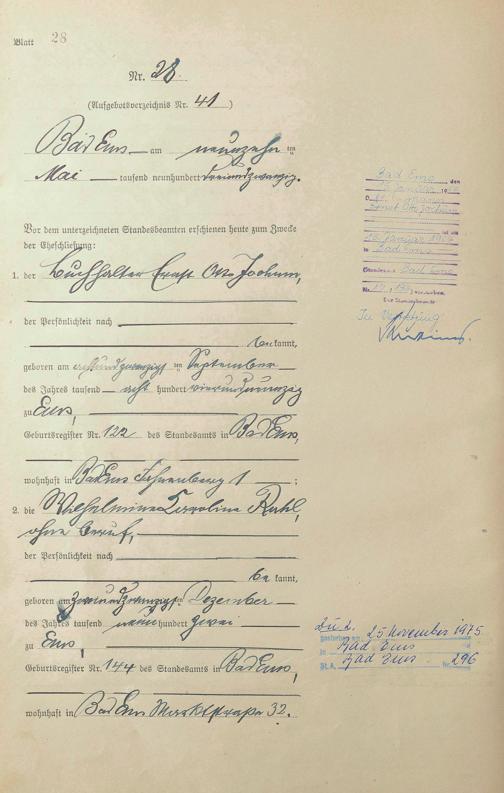 Blatt 28
Nr. 28.
(Aufgebotsverzeichnis Nr. 41)
Bad Ems am neunzehn ten
Mai tausend neunhundert dreiundzwanzig.
Vor dem unterzeichneten Standesbeamten erschienen heute zum Zwecke
der Eheschließung:
1. der Buchhalter Ernst Otto Jochum,
der Persönlichkeit nach
bekannt,
geboren am ten September
des Jahres tausend acht hundert vierundneunzig
zu Ems,
Geburtsregister Nr. 122 des Standesamts in Bad Ems,
wohnhaft in Bad Ems 1;
2. die Wilhelmine Karoline
ohne Beruf,
der Persönlichkeit nach
bekannt,
geboren am zweiundzwanzigst Dezember
des Jahres tausend neun hundert zwei
zu Ems,
Geburtsregister Nr. 144 des Standesamts in Bad Ems,
wohnhaft in Bad Ems Marktstraße 32.
Bad Ems den
Januar
Ernst Otto Jochum
ist am
Januar
in Bad Ems
Standesamt Bad Ems
Nr. verstorben.
Der Standesbeamte
In Vertretung
Zu 2.
gestorben am 25 November 1975
in Bad Ems
St.A. Bad Ems Nr. 296